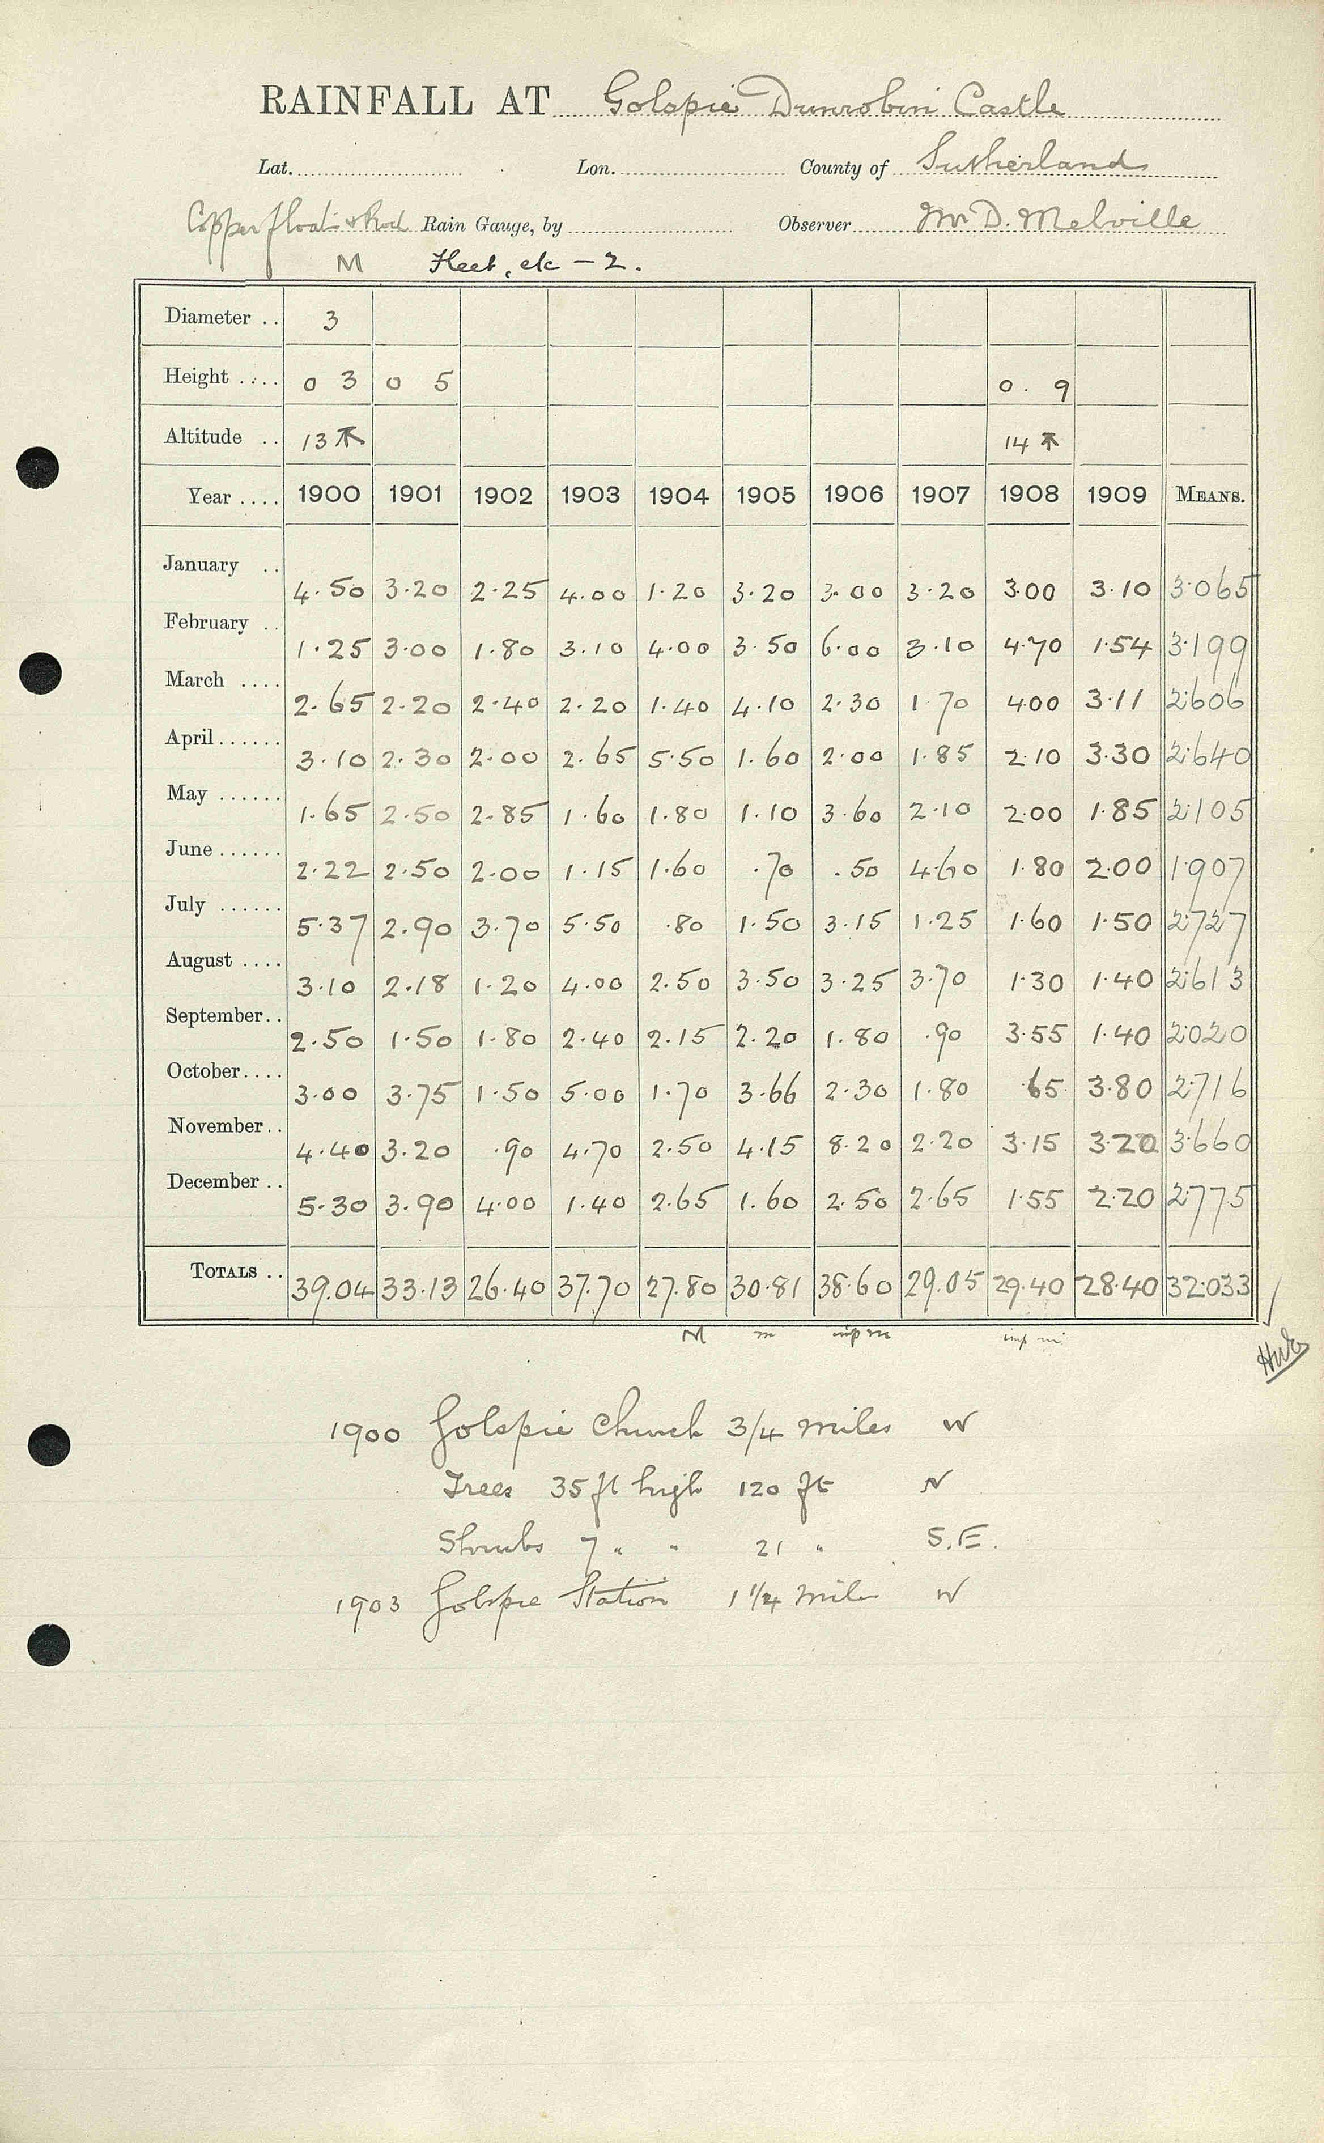 RAINFALL AT Golspie Dunrobin Castle
Lat. Lon. County of Sutherland
Copper float & Rod Rain Gauge, by Observer Mr D. Melville
M Fleet, etc - 2.
Diameter .. 3
Height .... 0 3 0 5 0. 9
Altitude .. 13 14
Year .... 1900 1901 1902 1903 1904 1905 1906 1907 1908 1909 MEANS.
January .. 4.50 3.20 2.25 4.00 1.20 3.20 3.00 3.20 3.00 3.10 3.065
February .. 1.25 3.00 1.80 3.10 4.00 3.50 6.00 3.10 4.70 1.54 3.199
March .... 2.65 2.20 2.40 2.20 1.40 4.10 2.30 1.70 4.00 3.11 2.606
April ...... 3.10 2.30 2.00 2.65 5.50 1.60 2.00 1.85 2.10 3.30 2.640
May ...... 1.65 2.50 2.85 1.60 1.80 1.10 3.60 2.10 2.00 1.85 2.105
June ...... 2.22 2.50 2.00 1.15 1.60 .70 .50 4.60 1.80 2.00 1.907
July ...... 5.37 2.90 3.70 5.50 .80 1.50 3.15 1.25 1.60 1.50 2.727
August .... 3.10 2.18 1.20 4.00 2.50 3.50 3.25 3.70 1.30 1.40 2.613
September .. 2.50 1.50 1.80 2.40 2.15 2.20 1.80 .90 3.55 1.40 2.020
October .... 3.00 3.75 1.50 5.00 1.70 3.66 2.30 1.80 .65 3.80 2.716
November .. 4.40 3.20 .90 4.70 2.50 4.15 8.20 2.20 3.15 3.20 3.660
December .. 5.30 3.90 4.00 1.40 2.65 1.60 2.50 2.65 1.55 2.20 2.775
TOTALS .. 39.04 33.13 26.40 37.70 27.80 30.81 38.60 29.05 29.40 28.40 32.033
M m inp m inp m
1900 Golspie Church 3/4 miles W
Trees 35 ft high 120 ft N
Shrubs 7 " " 21 " S.E.
1903 Golspie Station 1 1/4 mile W